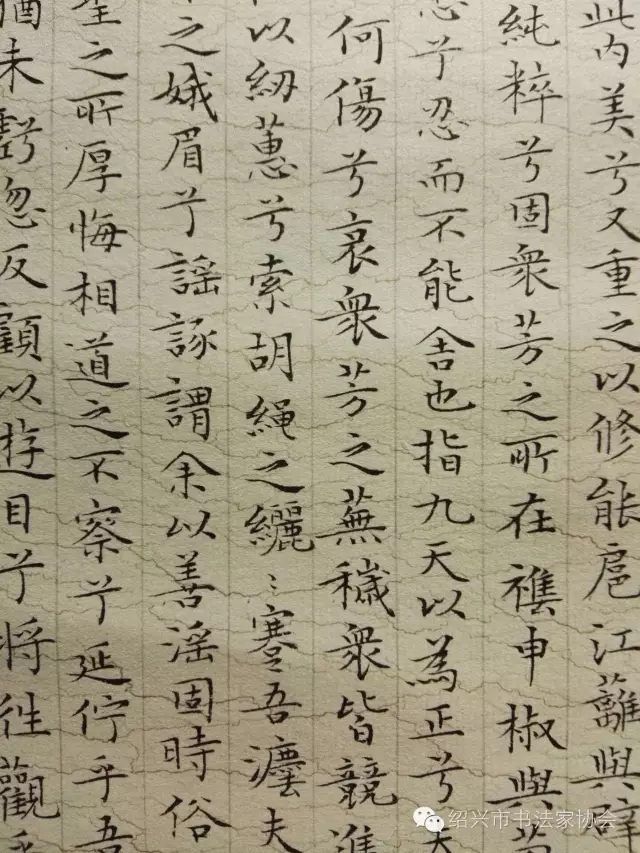 此内美兮又重之以修能扈江蘺與辟
純粹兮固衆芳之所在襍申椒與菌
忍兮忍而不能舍也指九天以為正兮夫
何傷兮哀衆芳之蕪穢衆皆競進
以紉蕙兮索胡繩之纚〻謇吾灋夫
之娥眉兮謡諑謂余以善滛固時俗
聖之所厚悔相道之不察兮延佇乎吾
猶未虧忽反顧以遊目兮将往觀乎
绍兴市书法家协会